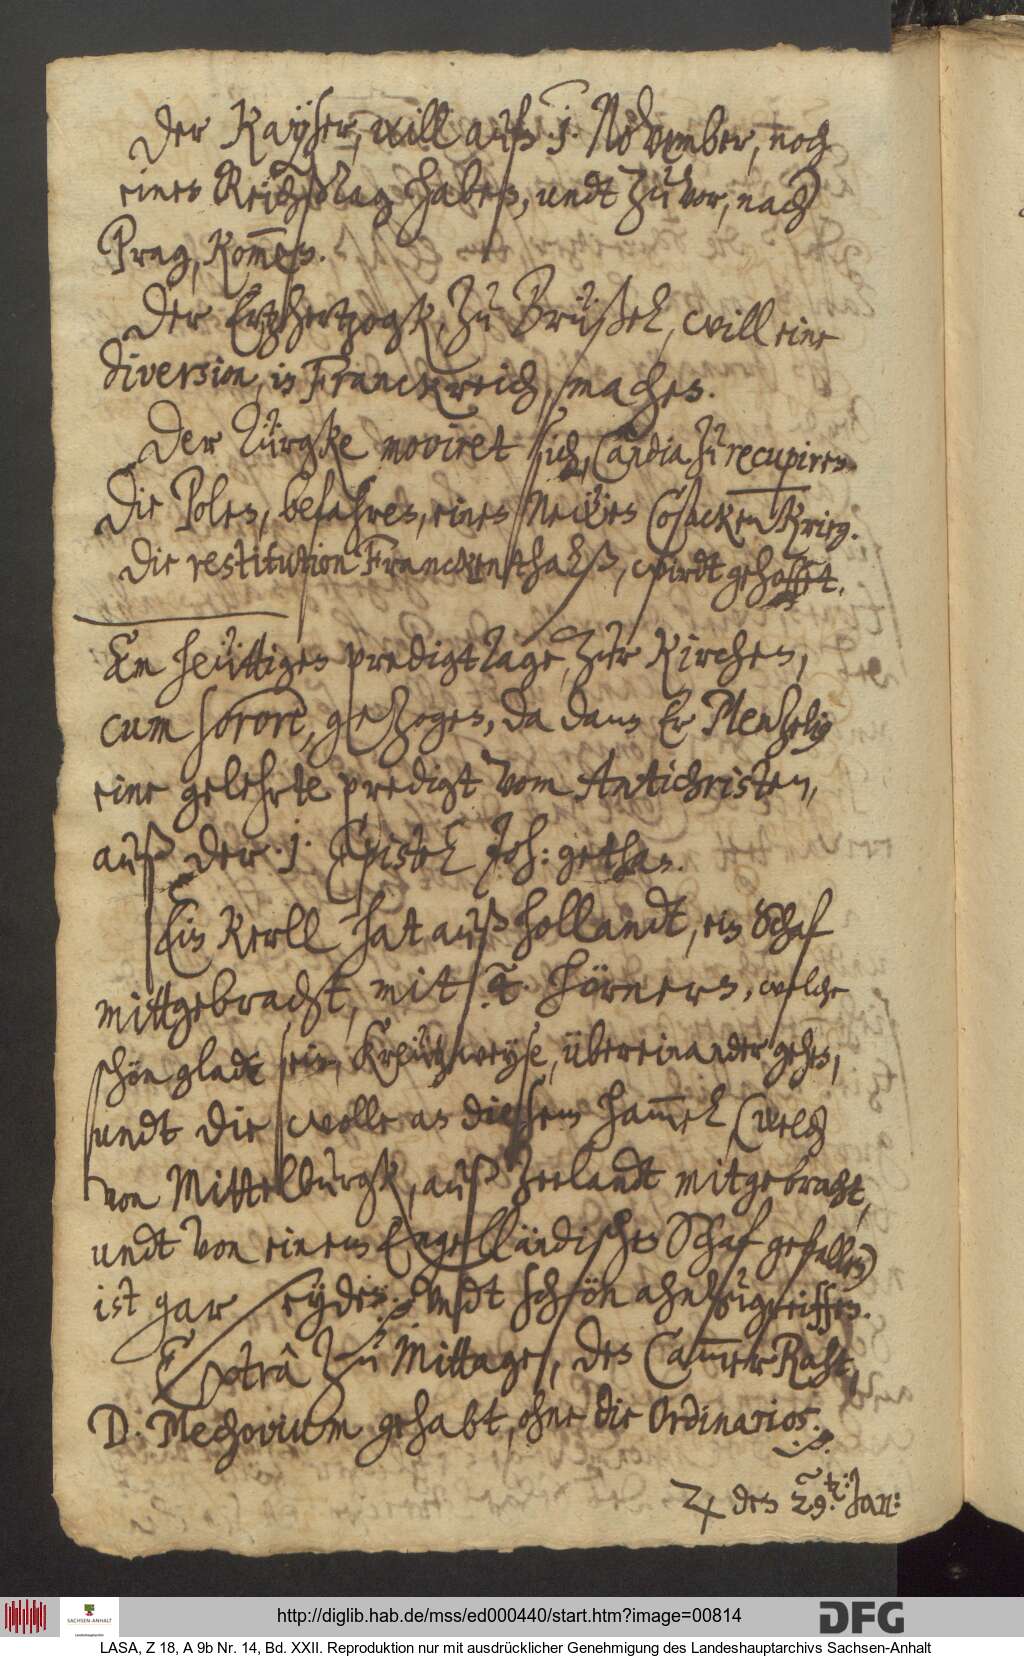 Der Kayser, will auß .1. November, noch
einen ReichßTag haben, undt zuvor, nach
Prag, kom̄en.
Der Ertzhertzogk, zu Brüßel, will eine
diversion, in Franckreich, machen.
Der Türgke moviret sich, Candia zu recuperiren
Die Polen, befahren, einen Neẅen CosackenKrieg.
Die restitution Franckenthalß, wirdt gehofft.
Am heüttigen predigtTage, zur Kirchen,
cum sorore, gezogen, da dann Er Menzelig
eine gelehrte predigt vom Antichristen,
auß der .1. Epistel Joh: gethan.
Ein Kerll hat auß Hollandt, ein Schaf
mittgebracht, mit .4. Hörnern, welche
schön gladt sein, Kreützweyse, übereinander gehen,
undt die wolle an diesem Ham̄el (welch
von Mittelburgk, auß Zeelandt mitgebracht,
undt von einem Engelländischen Schaf gefallen)
ist gar seyden: undt schön ahnzugreiffen.
Extra zu Mittage, den Cam̄erRaht,
D. Mechovium gehabt, ohne die Ordinarios.
♃ den 29. Jan:
http://diglib.hab.de/mss/ed000440/start.htm?image=00814
DFG
SACHSEN-ANHALT
LASA, Z 18, A 9b Nr. 14, Bd. XXII. Reproduktion nur mit ausdrücklicher Genehmigung des Landeshauptarchivs Sachsen-Anhalt